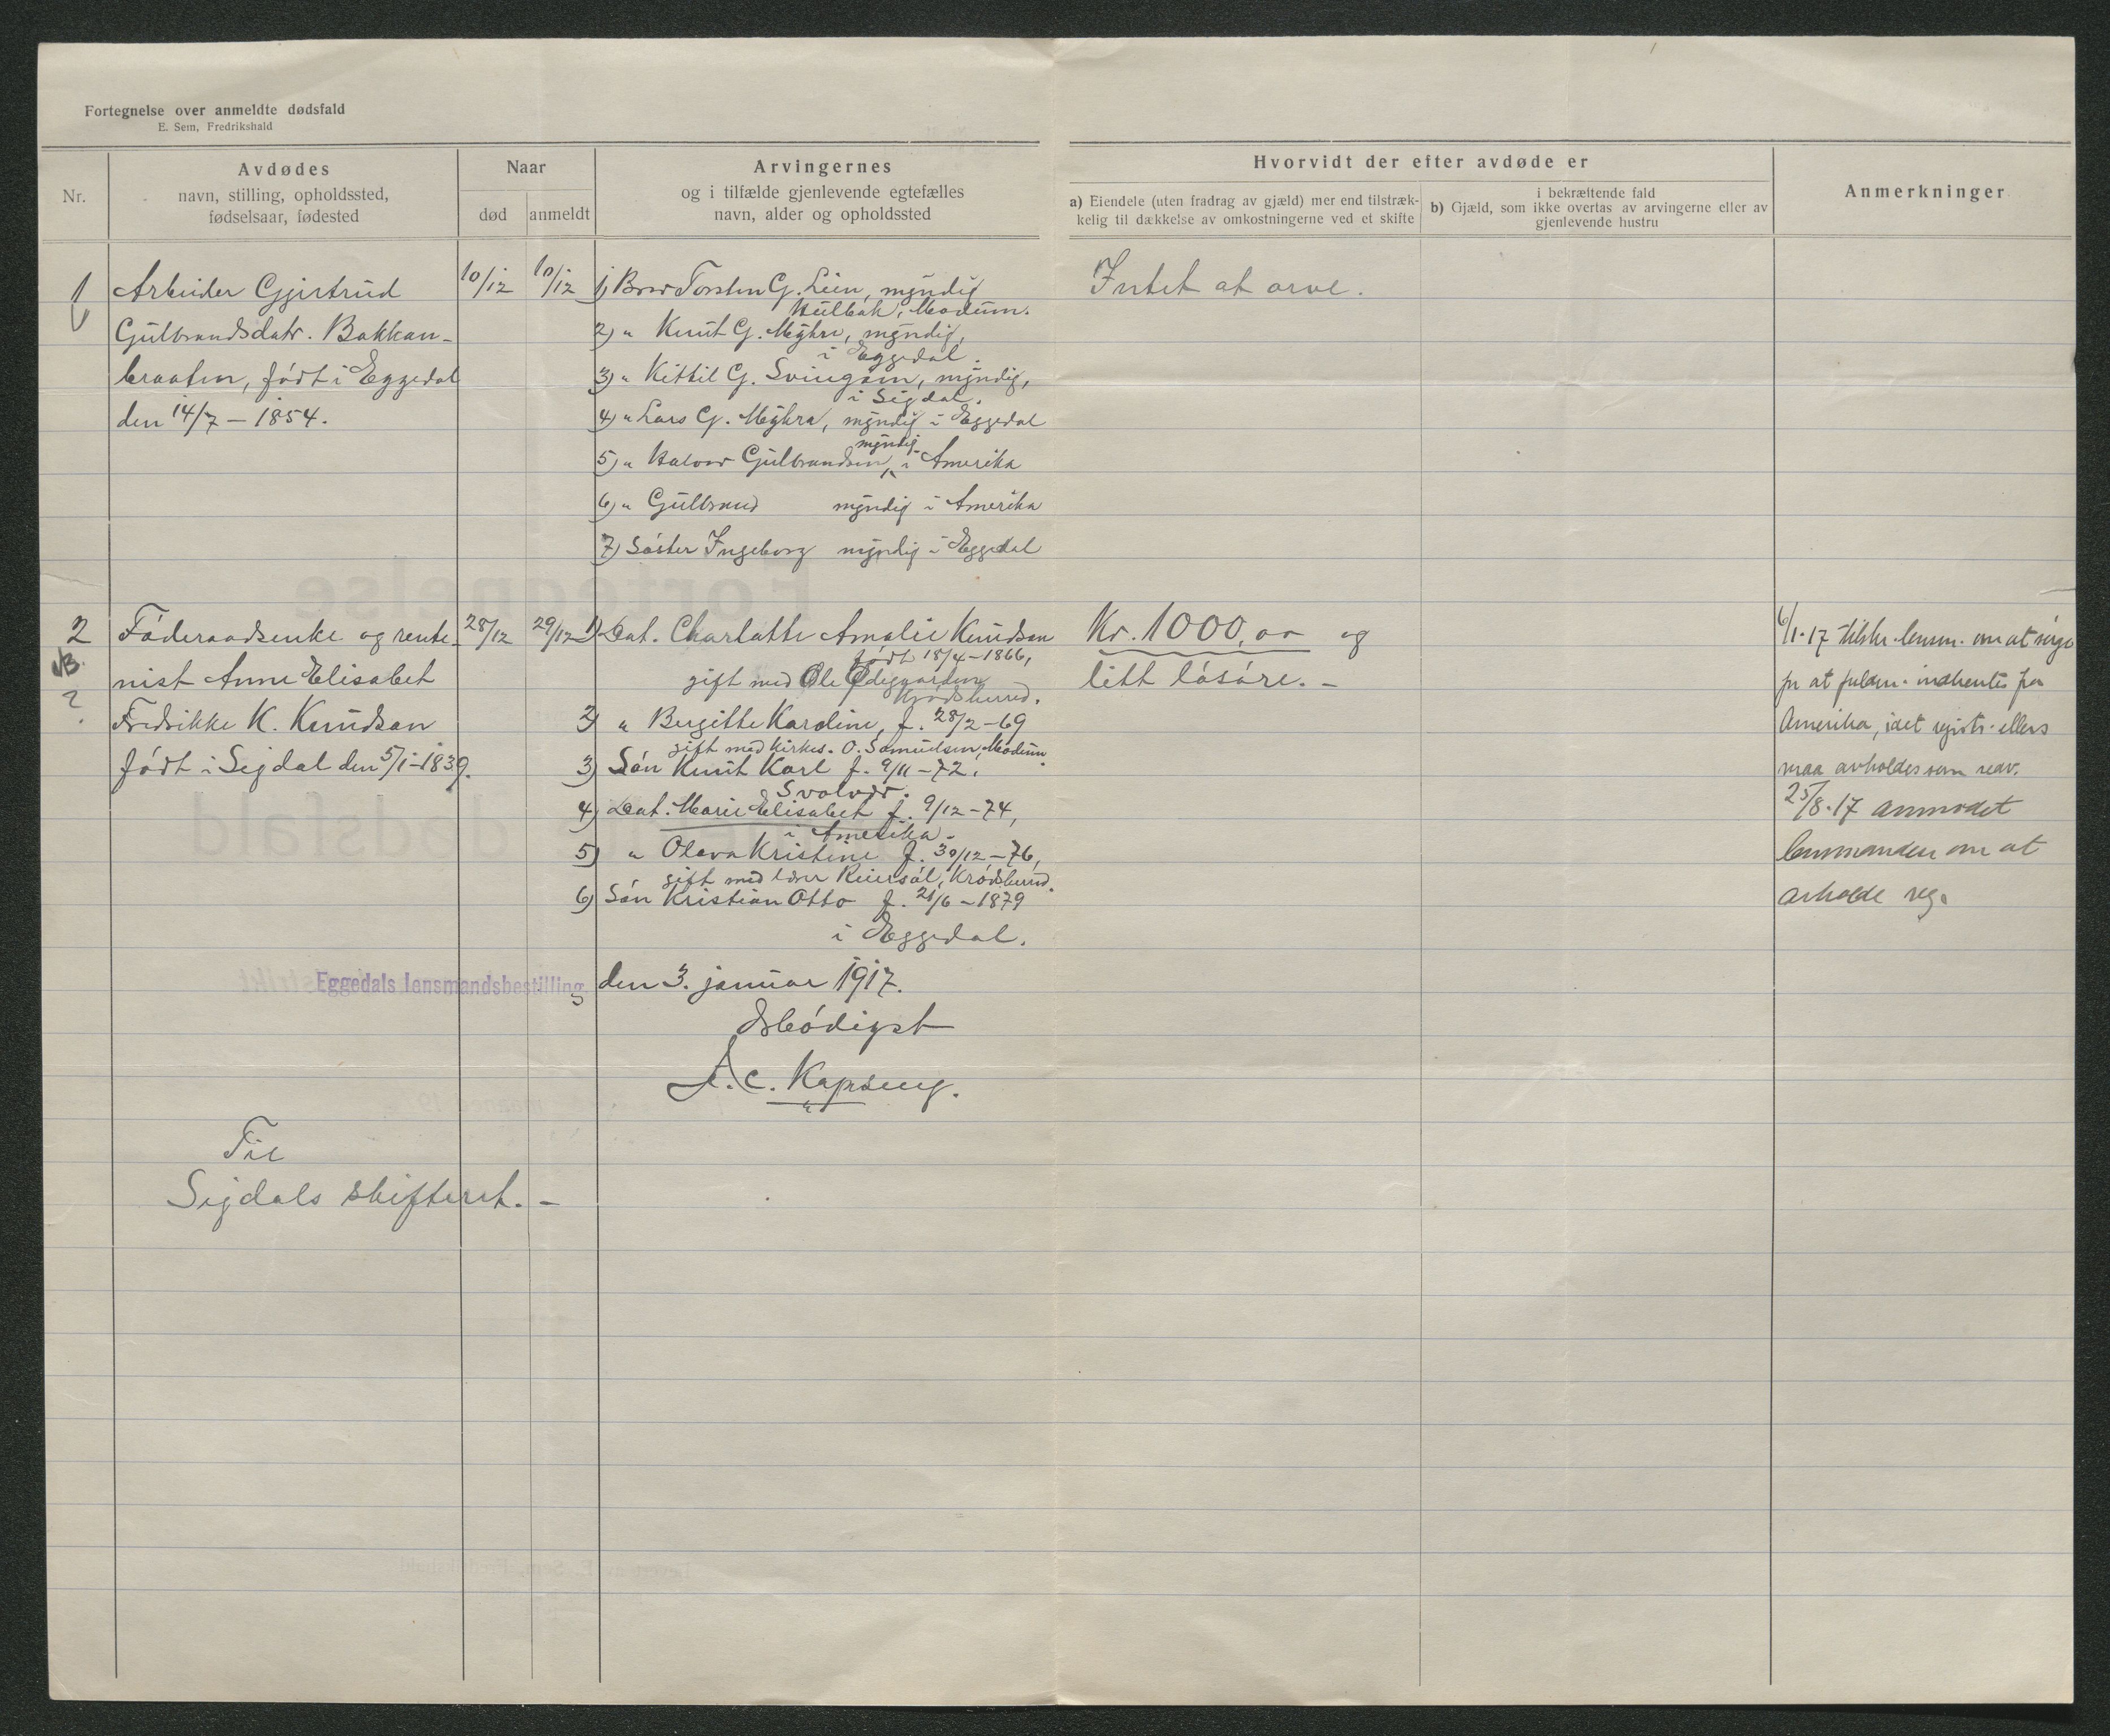 Fortegnelse over anmeldte dødsfald
E. Sem, Fredrikshald
Nr.
Avdødes
navn, stilling, opholdssted,
fødselsaar, fødested
Naar
død
anmeldt
Arvingernes
og i tilfælde gjenlevende egtefælles
navn, alder og opholdssted
Hvorvidt der efter avdøde er
a) Eiendele (uten fradrag av gjæld) mer end tilstræk-
kelig til dækkelse av omkostningerne ved et skifte
i bekræftende fald
b) Gjæld, som ikke overtas av arvingerne eller av
gjenlevende hustru
Anmerkninger
1
Arbeider Gjertrud
Gulbrandsdatr. Bakkan-
braaten, født i Eggedal
den 14/7 - 1854.
10/12
10/12
1) Bror Torsten G. Lien, myndig
Hulbak, Modum.
2) " Knut G. Myhre, myndig,
i Eggedal.
3) " Kittil G. Svingom, myndig,
i Sigdal.
4) " Lars G. Myhra, myndig i Eggedal
myndig
5) " Halvor Gulbrandsen, i Amerika
6) " Gulbrand myndig i Amerika
7) Søster Ingeborg myndig i Eggedal
Intet at arve.
2
Føderaadsenke og rente-
nist Anne Elisabet
Fredrikke K. Knudsen
født i Sigdal den 5/1-1839.
NB.
?
28/12
29/12
1) Dat. Charlotte Amalie Knudsen
født 18/4-1866,
gift med Ole Ødegaarden
Krødsherred.
2) " Bergitte Karoline, f. 28/2-69
gift med kirkes. O. Samuelsen, Modum.
3) Søn Knut Karl f. 9/11-72.
Svolvær.
4) Dat. Marie Elisabet f. 9/12-74,
i Amerika.
5) " Olava Kristine f. 30/12-76,
gift med lærer Kuersøl, Krødsherred.
6) Søn Kristian Otto f. 21/6-1879
i Eggedal.
Kr. 1000,00 og
litt løsøre. -
6/1-17 tilskr. lensm. om at sørge
for at fuldm. indhentes fra
Amerika, idet registr. ellers
maa avholdes som
25/8-17 anmodet
lensmanden om at
avholde reg.
Eggedals lensmandsbestilling
den 3. januar 1917.
Ærbødigst
A. C. Kopseng.
Til
Sigdals skifteret. -